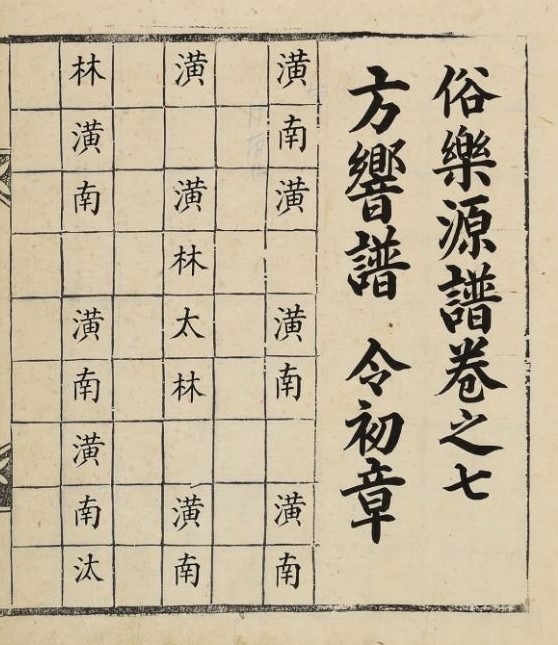 俗樂源譜卷之七
方響譜 令初章
潢南潢潢南潢南
潢潢林太林潢南
林潢南潢南潢南汰